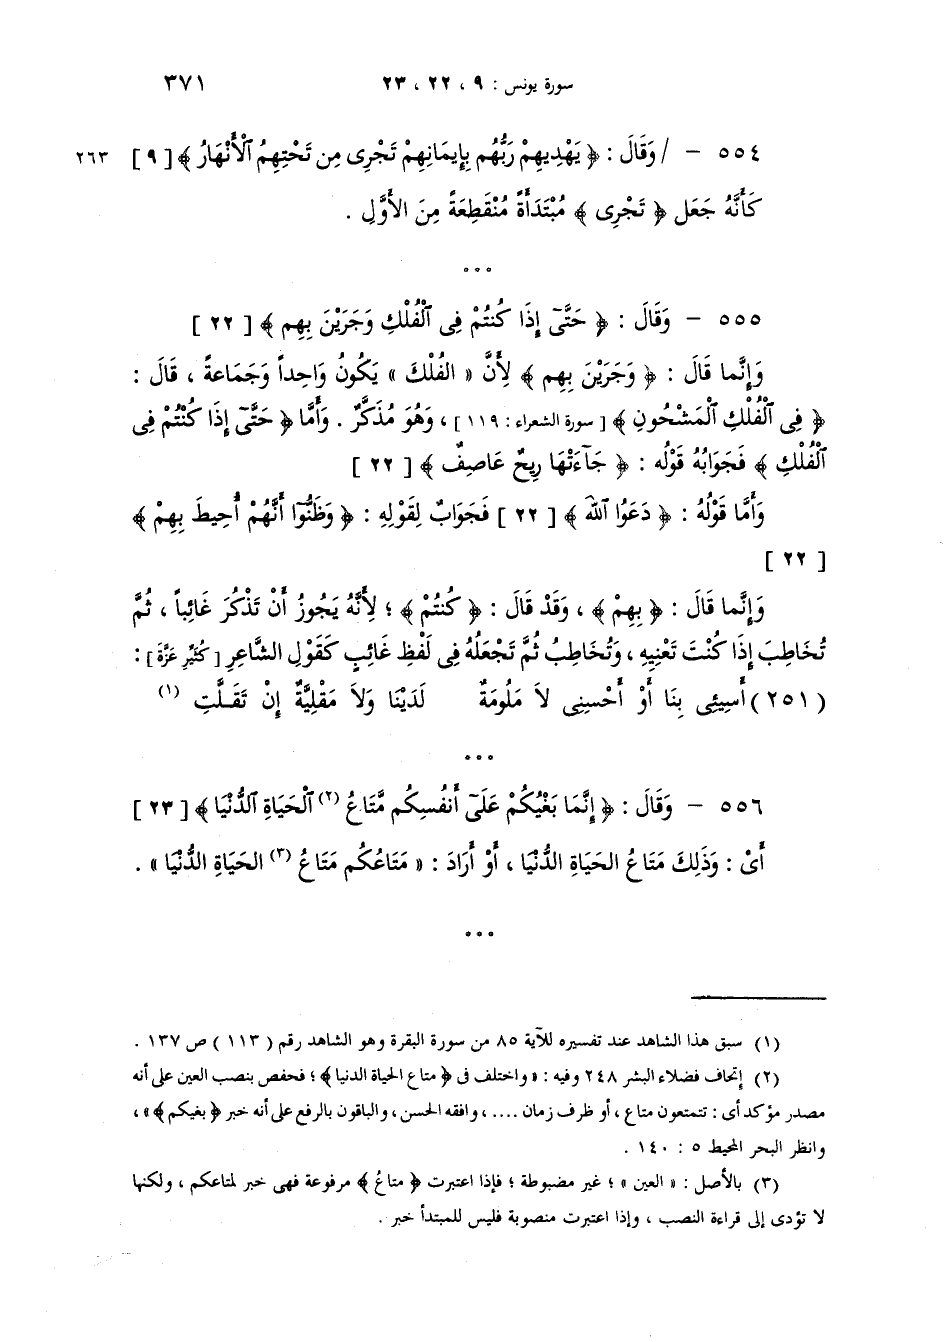 سورة يونس : ٩ ، ٢٢ ، ٢٣ ٣٧١
٥٥٤ – / وَقَالَ : ﴿ يَهْدِيهِمْ رَبُّهُم بِإِيمَانِهِمْ تَجْرِى مِن تَحْتِهِمُ ٱلْأَنْهَارُ ﴾ [ ٩ ] ٢٦٣
كَأَنَّهُ جَعَل ﴿ تَجْرِى ﴾ مُبْتَدَأَةً مُنْقَطِعَةً مِنَ الأَوَّلِ .
•••
٥٥٥ – وَقَالَ : ﴿ حَتَّىٰٓ إِذَا كُنتُمْ فِى ٱلْفُلْكِ وَجَرَيْنَ بِهِم ﴾ [ ٢٢ ]
وَإِنَّما قَالَ : ﴿ وَجَرَيْنَ بِهِم ﴾ لِأَنَّ « الفُلْكَ » يَكُونُ وَاحِداً وَجَمَاعةً ، قَالَ :
﴿ فِى ٱلْفُلْكِ ٱلْمَشْحُونِ ﴾ [ سورة الشعراء : ١١٩ ] ، وَهُوَ مُذَكَّرٌ . وَأَمَّا ﴿ حَتَّىٰ إِذَا كُنْتُمْ فِى
ٱلْفُلْكِ ﴾ فَجَوَابُهُ قَوْلُه : ﴿ جَآءَتْهَا رِيحٌ عَاصِفٌ ﴾ [ ٢٢ ]
وَأَمَّا قَوْلُهُ : ﴿ دَعَوُا ٱللَّهَ ﴾ [ ٢٢ ] فَجَوَابٌ لِقَوْلِهِ : ﴿ وَظَنُّوٓا أَنَّهُمْ أُحِيطَ بِهِمْ ﴾
[ ٢٢ ]
وَإِنَّما قَالَ : ﴿ بِهِمْ ﴾ ، وَقَدْ قَالَ : ﴿ كُنتُمْ ﴾ ؛ لِأَنَّهُ يَجُوزُ أَنْ تَذْكُرَ غَائِباً ، ثُمَّ
تُخَاطِبَ إِذَا كُنْتَ تَعْنِيهِ ، وَتُخَاطِبُ ثُمَّ تَجْعَلُهُ فِى لَفْظِ غَائِبٍ كَقَوْلِ الشَّاعِرِ [ كُثَيِّرِ عَزَّةَ ] :
( ٢٥١ ) أَسِيئِى بِنَا أَوْ أَحْسِنِى لاَ مَلُومَةٌ لَدَيْنَا وَلاَ مَقْلِيَّةٌ إِنْ تَقَلَّتِ (١)
•••
٥٥٦ – وَقَالَ : ﴿ إِنَّمَا بَغْيُكُمْ عَلَىٰٓ أَنفُسِكُم مَّتَاعُ (٢) ٱلْحَيَاةِ ٱلدُّنْيَا ﴾ [ ٢٣ ]
أَىْ : وَذَلِكَ مَتَاعُ الحَيَاةِ الدُّنْيَا ، أَوْ أَرَادَ : « مَتَاعُكُم مَتَاعُ (٣) الحَيَاةِ الدُّنْيَا » .
•••
(١) سبق هذا الشاهد عند تفسيره للآية ٨٥ من سورة البقرة وهو الشاهد رقم ( ١١٣ ) ص ١٣٧ .
(٢) إتحاف فضلاء البشر ٢٤٨ وفيه : « واختلف فى ﴿ متاع الحياة الدنيا ﴾ ؛ فحفص بنصب العين على أنه
مصدر مؤكد أى : تتمتعون متاع ، أو ظرف زمان .... ، وافقه الحسن ، والباقون بالرفع على أنه خبر ﴿ بغيكم ﴾ » ،
وانظر البحر المحيط ٥ : ١٤٠ .
(٣) بالأصل : « العين » ؛ غير مضبوطة ؛ فإذا اعتبرت ﴿ متاعُ ﴾ مرفوعة فهى خبر لمتاعكم ، ولكنها
لا تؤدى إلى قراءة النصب ، وإذا اعتبرت منصوبة فليس للمبتدأ خبر .